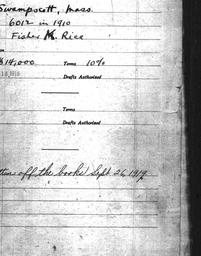 Swampscott, Mass.
6012 in 1910
Fisher K. Rice
$14,000 Terms 10%
Drafts Authorized
Terms
Drafts Authorized
off the books Sept 26, 1919